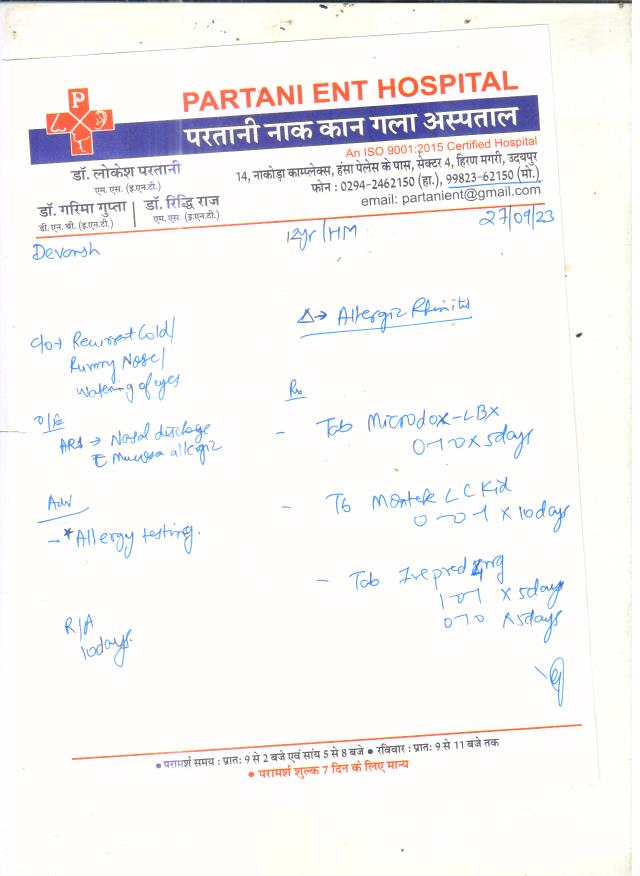 P
PARTANI ENT HOSPITAL
परतानी नाक कान गला अस्पताल
An ISO 9001:2015 Certified Hospital
14, नाकोड़ा काम्प्लेक्स, हंसा पेलेस के पास, सेक्टर 4, हिरण मगरी, उदयपुर
फोन : 0294-2462150 (हा.), 99823-62150 (मो.)
email: partanient@gmail.com
डॉ. लोकेश परतानी
एम. एस. (इ.एन.टी.)
डॉ. गरिमा गुप्ता | डॉ. रिद्धि राज
डी. एन. बी. (इ.एन.टी.) | एम. एस. (इ.एन.टी.)
27/09/23
Devansh
12yr/HM
Δ→ Allergic Rhinitis
c/o→ Recurrent Cold/
Runny Nose/
Watering of eyes
O/E
ARS → Nasal discharge
c Mucosa allergic
Adv
- *Allergy testing.
R/A
10days.
Rx
- Tab Microdox-LBX
0-1-0 x 5days
- Tb Montek LC Kid
0-0-1 x 10days
- Tab Ivepred 4mg
1-0-1 x 5days
0-1-0 x 5days
• परामर्श समय : प्रातः 9 से 2 बजे एवं सांय 5 से 8 बजे • रविवार : प्रातः 9 से 11 बजे तक
• परामर्श शुल्क 7 दिन के लिए मान्य